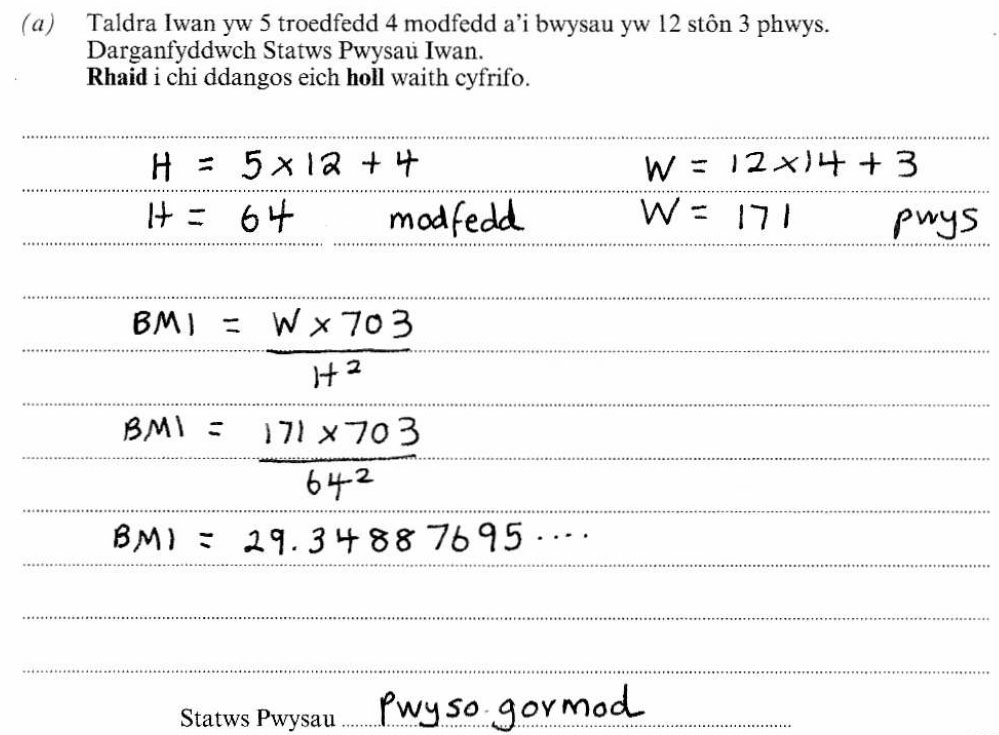 (a) Taldra Iwan yw 5 troedfedd 4 modfedd a'i bwysau yw 12 stôn 3 phwys.
Darganfyddwch Statws Pwysau Iwan.
Rhaid i chi ddangos eich holl waith cyfrifo.
H = 5 × 12 + 4 W = 12 × 14 + 3
H = 64 modfedd W = 171 pwys
BMI = W × 703
H²
BMI = 171 × 703
64²
BMI = 29.34887695....
Statws Pwysau Pwyso gormod